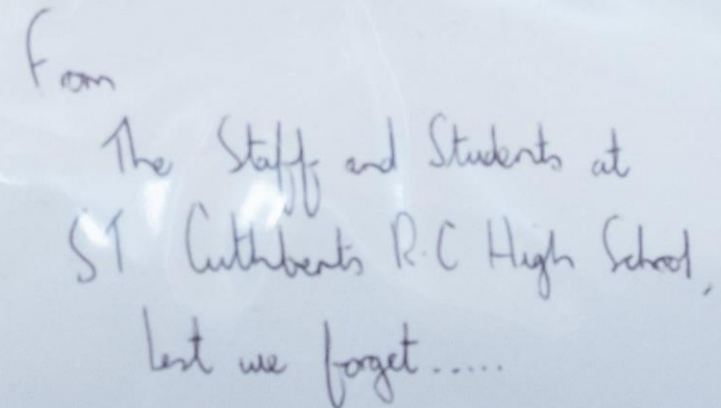 From
The Staff and Students at
ST Cuthberts R.C High School,
Lest we forget.....